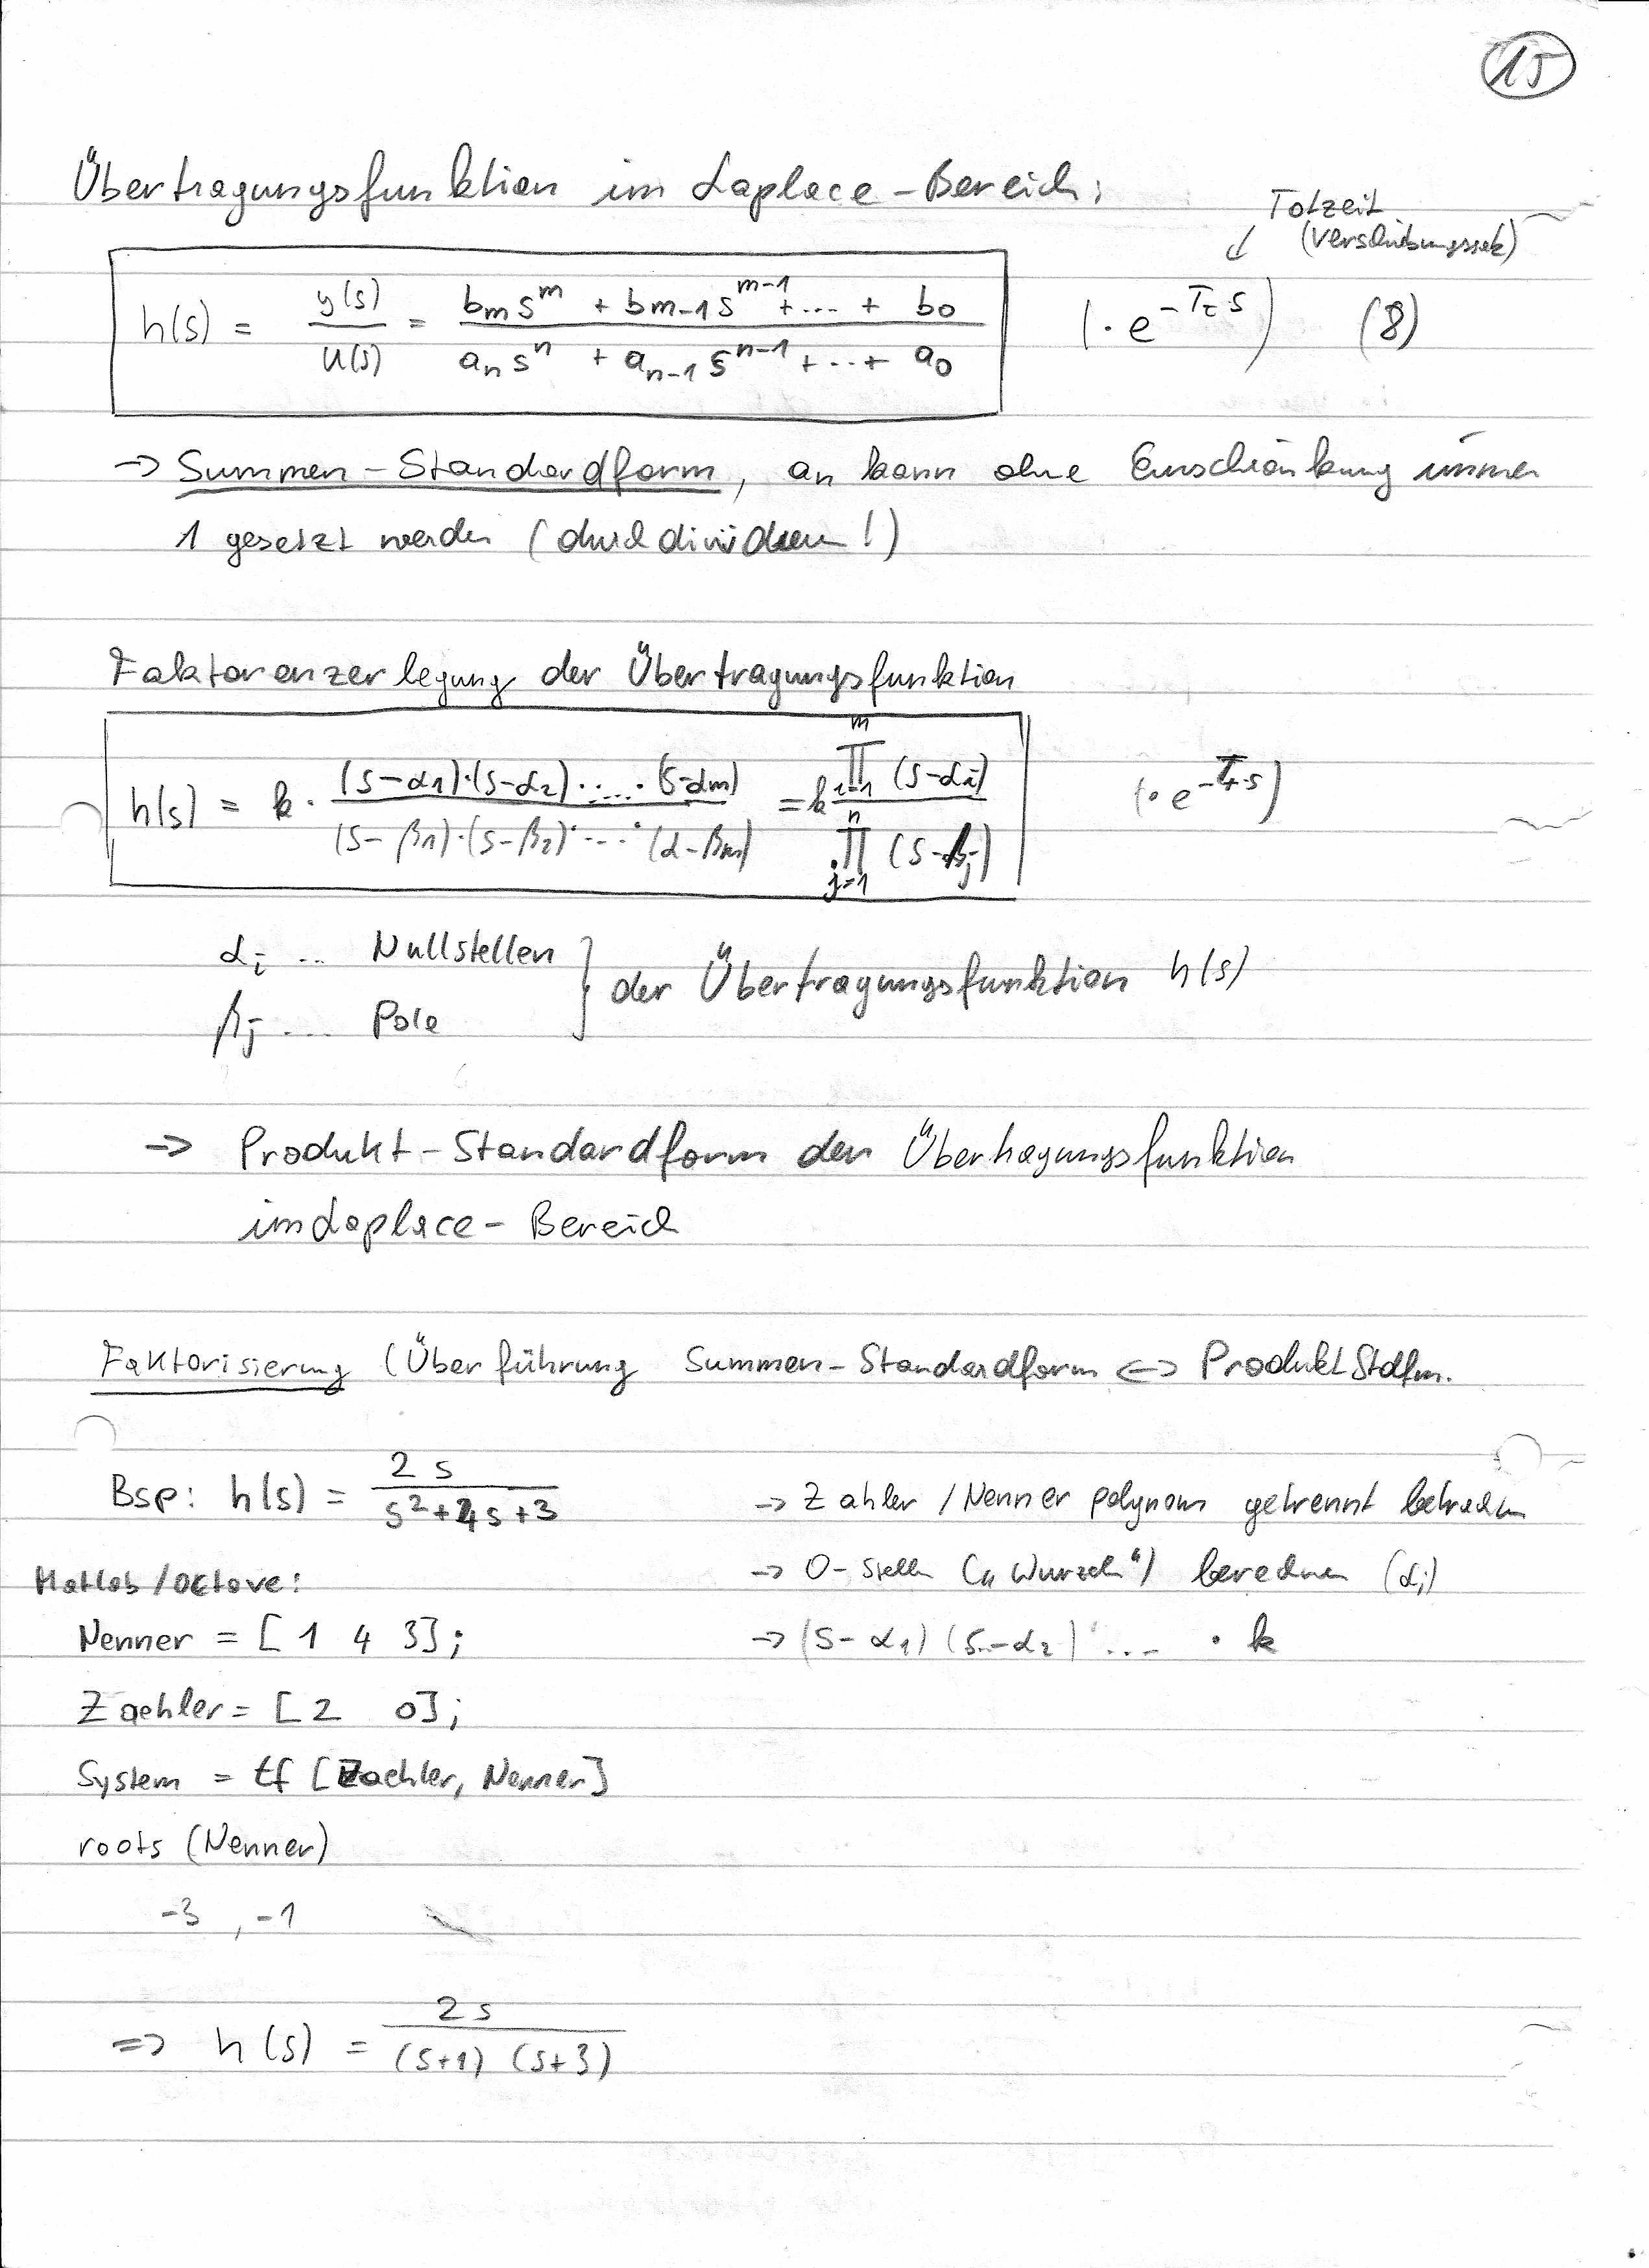 15
Übertragungsfunktion im Laplace-Bereich:
Totzeit
(Verschiebungssatz)
h(s) = y(s)/u(s) = (b_m s^m + b_{m-1} s^{m-1} + .... + b_0)/(a_n s^n + a_{n-1} s^{n-1} + ... + a_0) (· e^{-T_t·s}) (8)
-> Summen-Standardform, an kann ohne Einschränkung immer
1 gesetzt werden (durchdividieren!)
Faktorenzerlegung der Übertragungsfunktion
h(s) = k · ((s-α1)·(s-α2)·....·(s-αm))/((s-β1)·(s-β2)·....·(α-βm)) = k ∏_{i=1}^{m} (s-αi) / ∏_{j=1}^{n} (s-βj) (· e^{-T_t·s})
αi ... Nullstellen
βj .... Pole
} der Übertragungsfunktion h(s)
-> Produkt-Standardform der Übertragungsfunktion
im Laplace-Bereich
Faktorisierung (Überführung Summen-Standardform <-> Produkt Stdfm.
Bsp: h(s) = 2s/(s²+4s+3)
-> Zähler/Nenner polynom getrennt betrachten
-> 0-Stellen („Wurzeln“) berechnen (αi)
-> (s-α1)(s-α2) .... · k
Matlab/Octave:
Nenner = [1 4 3];
Zaehler = [2 0];
System = tf [Zaehler, Nenner]
roots (Nenner)
-3 , -1
=> h(s) = 2s/((s+1) (s+3))